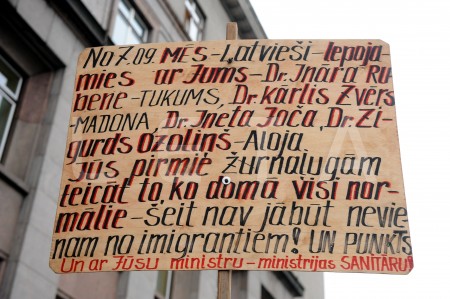 No 7.09. MĒS - Latvieši - lepoja
mies ar Jums - Dr. Ināra Ru
bene - TUKUMS, Dr. Kārlis Zvērs
- MADONA, Dr. Ineta Joča, Dr. Zi
gurds Ozoliņš - Aloja
Jūs pirmie žurnalugām
teicāt to, ko domā visi nor-
mālie - šeit nav jābūt nevie
nam no imigrantiem! UN PUNKTS
Un ar Jūsu ministru - ministrijas SANITĀRU!